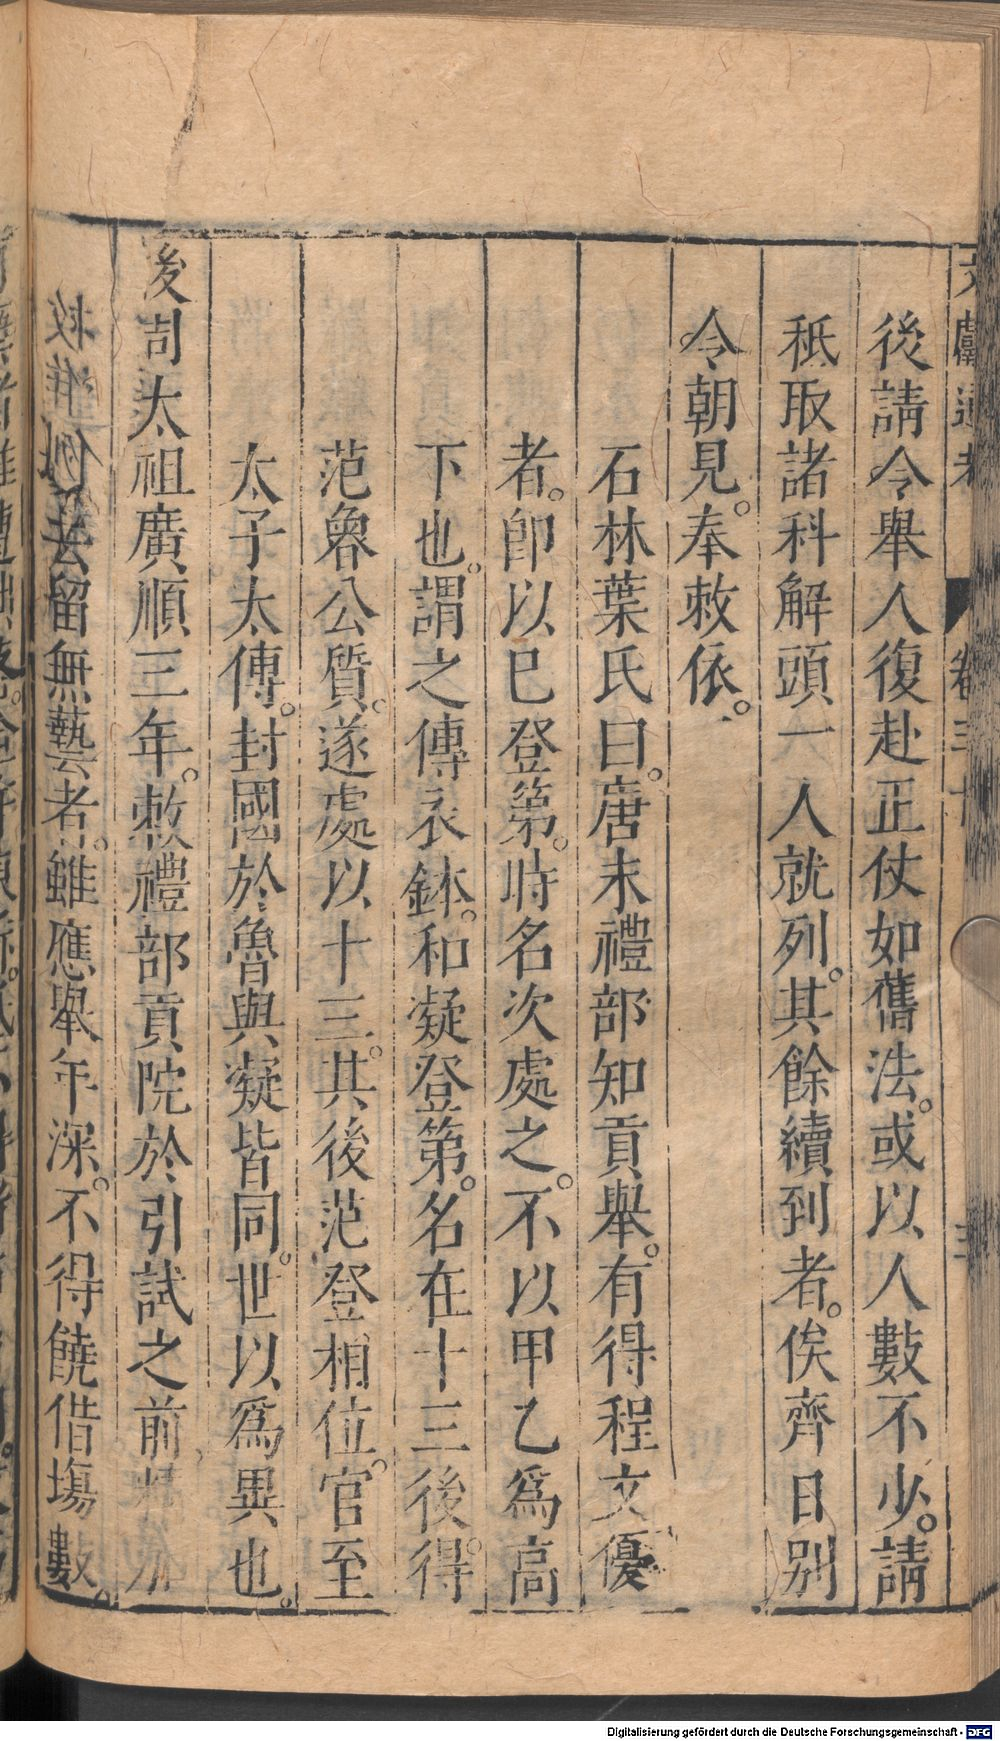 文獻通考 卷三十 三
後請令舉人復赴正仗如舊法。或以人數不少。請
秪取諸科解頭一人就列。其餘續到者。俟齊日別
令朝見。奉敕依。
石林葉氏曰。唐末禮部知貢舉。有得程文優
者。卽以巳登第。時名次處之。不以甲乙爲高
下也。謂之傳衣鉢。和凝登第。名在十三後。得
范魯公質。遂處以十三。其後范登相位。官至
太子太傅。封國於魯。與凝皆同。世以爲異也。
後周太祖廣順三年。敕禮部貢院於引試之前
去留無藝者。雖應舉年深。不得饒借塲數。
Digitalisierung gefördert durch die Deutsche Forschungsgemeinschaft - DFG